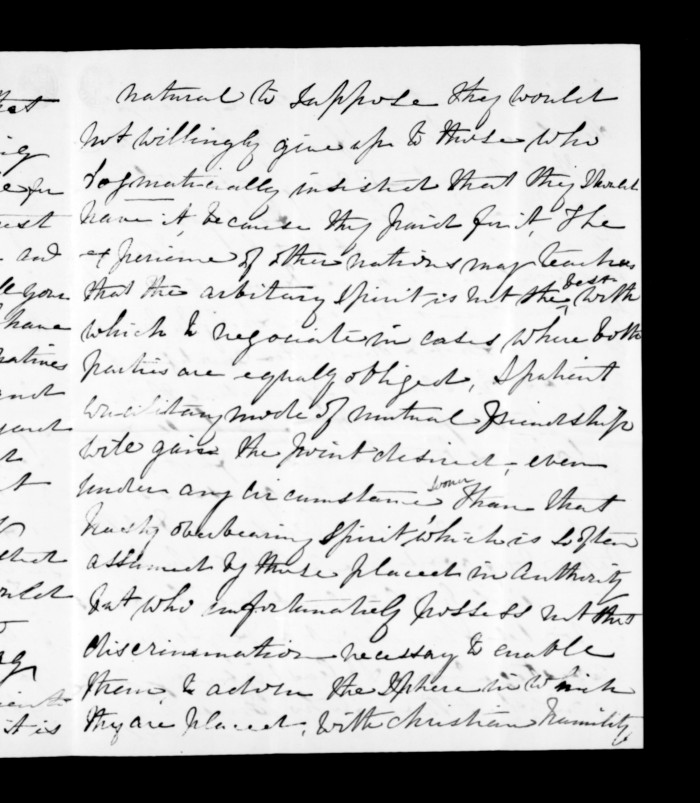 natural to suppose they would
not willingly give up to those who
dogmatically insisted that they should
have it, because they paid for it, The
experience of other nations may teach us
that the arbitary spirit is not the best with
which to negociate in cases where both
parties are equally obliged, A patient
conciliatary mode of mutual friendship
will gain the point desired, even
under any circumstance sooner than that
hasty overbearing spirit, which is so often
assumed by those placed in Authority
but who unfortunately possess not that
discrimination necessary to enable
them, to adorn the Sphere in which
they are placed, with christian humility